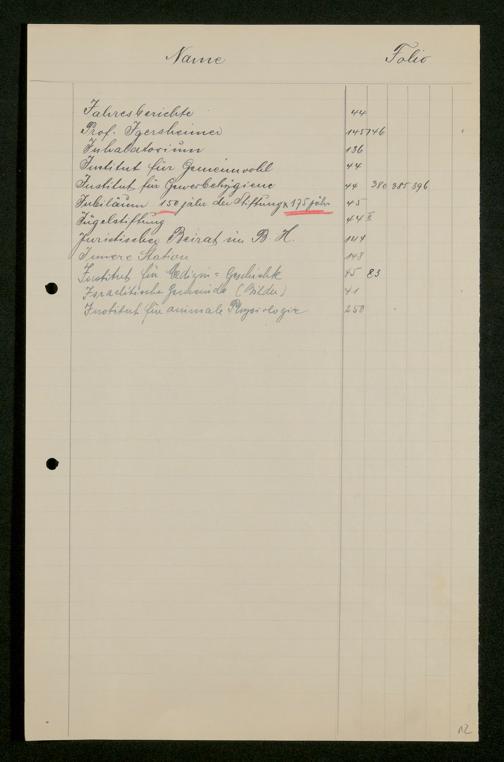 Name Folio
Jahresberichte 44
Prof. Igersheimer 145 146
Inhalatorium 136
Institut für Gemeinwohl 44
Institut für Gewerbehygiene 44 380 385 396
Jubiläum 150 jähr. der Stiftung 175 jähr. 45
Jügelstiftung 44
Juristischer Beirat im B. H. 144
Innere Station 148
Institut für Medizin = Geschichte 45 83
Israelitische Gemeinde (Bilder) 41
Institut für animale Physiologie 250
12